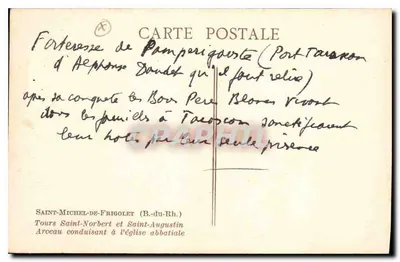 CARTE POSTALE
Forteresse de Pampérigouste (Port Tarascon
d'Alphonse Daudet qu'il faut relire)
après sa conquête les Bons Pères Blancs vivant
dans les à Tarascon sanctifiaient
leur par leur seule présence
SAINT-MICHEL-DE-FRIGOLET (B.-du-Rh.)
Tours Saint-Norbert et Saint-Augustin
Arceau conduisant à l'église abbatiale